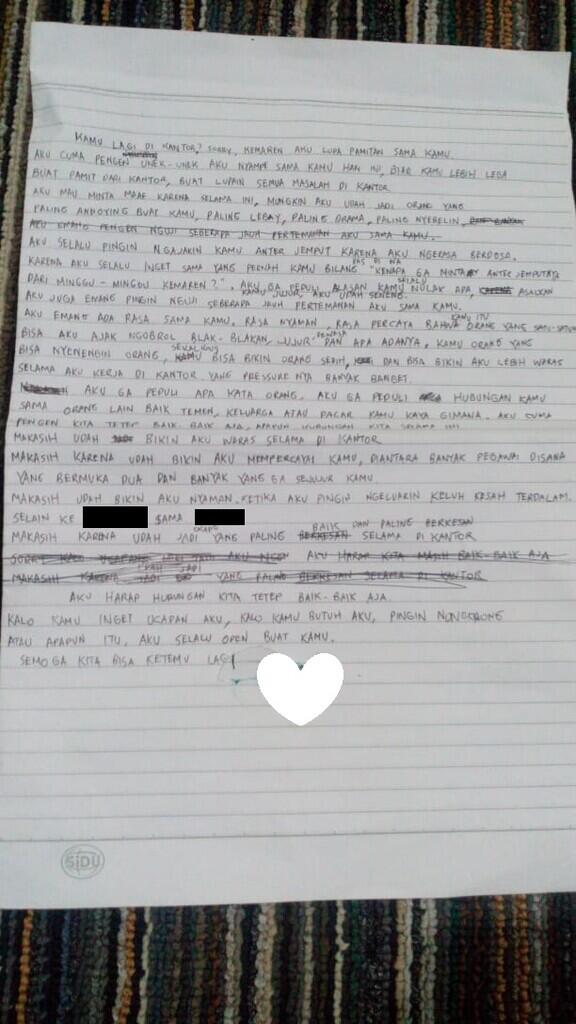 KAMU LAGI DI KANTOR? SORRY, KEMAREN AKU LUPA PAMITAN SAMA KAMU.
AKU CUMA PENGEN UNEK-UNEK AKU NYAMPE SAMA KAMU HARI INI, BIAR KAMU LEBIH LEGA
BUAT PAMIT DARI KANTOR, BUAT LUPAIN SEMUA MASALAH DI KANTOR
AKU MAU MINTA MAAF KARENA SELAMA INI, MUNGKIN AKU UDAH JADI ORANG YANG
PALING ANNOYING BUAT KAMU, PALING LEBAY, PALING DRAMA, PALING NYEBELIN,
AKU EMANG PENGEN NGUJI SEBERAPA JAUH PERTEMANAN AKU SAMA KAMU.
AKU SELALU PINGIN NGAJAKIN KAMU ANTER JEMPUT KARENA AKU NGERASA BERDOSA.
KARENA AKU SELALU INGET SAMA YANG PERNAH KAMU BILANG PAS DI WA "KENAPA GA MINTA ANTER JEMPUTNYA
DARI MINGGU-MINGGU KEMAREN?". AKU GA PEDULI ALASAN KAMU SELALU NULAK APA, ASALKAN
KAMU JUJUR, AKU UDAH SENENG.
AKU JUGA EMANG PINGIN NGUJI SEBERAPA JAUH PERTEMANAN AKU SAMA KAMU.
AKU EMANG ADA RASA SAMA KAMU. RASA NYAMAN, RASA PERCAYA BAHWA KAMU ITU ORANG YANG SATU-SATUNYA
BISA AKU AJAK NGOBROL BLAK-BLAKAN, JUJUR, DEWASA DAN APA ADANYA, KAMU ORANG YANG
BISA NYENENGIN ORANG, SEKALIGUS BISA BIKIN ORANG SEDIH, DAN BISA BIKIN AKU LEBIH WARAS
SELAMA AKU KERJA DI KANTOR YANG PRESSURE NYA BANYAK BANGET.
AKU GA PEDULI APA KATA ORANG. AKU GA PEDULI HUBUNGAN KAMU
SAMA ORANG LAIN BAIK TEMEN, KELUARGA ATAU PACAR KAMU KAYA GIMANA. AKU CUMA
PENGEN KITA TETEP BAIK-BAIK AJA, APAPUN HUBUNGAN KITA SELAMA INI
MAKASIH UDAH BIKIN AKU WARAS SELAMA DI KANTOR
MAKASIH KARENA UDAH BIKIN AKU MEMPERCAYAI KAMU, DIANTARA BANYAK PEGAWAI DISANA
YANG BERMUKA DUA DAN BANYAK YANG GA SEJUJUR KAMU
MAKASIH UDAH BIKIN AKU NYAMAN KETIKA AKU PINGIN NGELUARIN KELUH KESAH TERDALAM.
SELAIN KE SAMA
MAKASIH KARENA UDAH JADI ORANG YANG PALING BAIK DAN PALING BERKESAN SELAMA DI KANTOR
AKU HARAP KITA MASIH BAIK-BAIK AJA
MAKASIH KARENA UDAH JADI YANG PALING BERKESAN SELAMA DI KANTOR
AKU HARAP HUBUNGAN KITA TETEP BAIK-BAIK AJA.
KALO KAMU INGET UCAPAN AKU, KALO KAMU BUTUH AKU, PINGIN NONGKRONG
ATAU APAPUN ITU, AKU SELALU OPEN BUAT KAMU.
SEMOGA KITA BISA KETEMU LAGI
SiDU